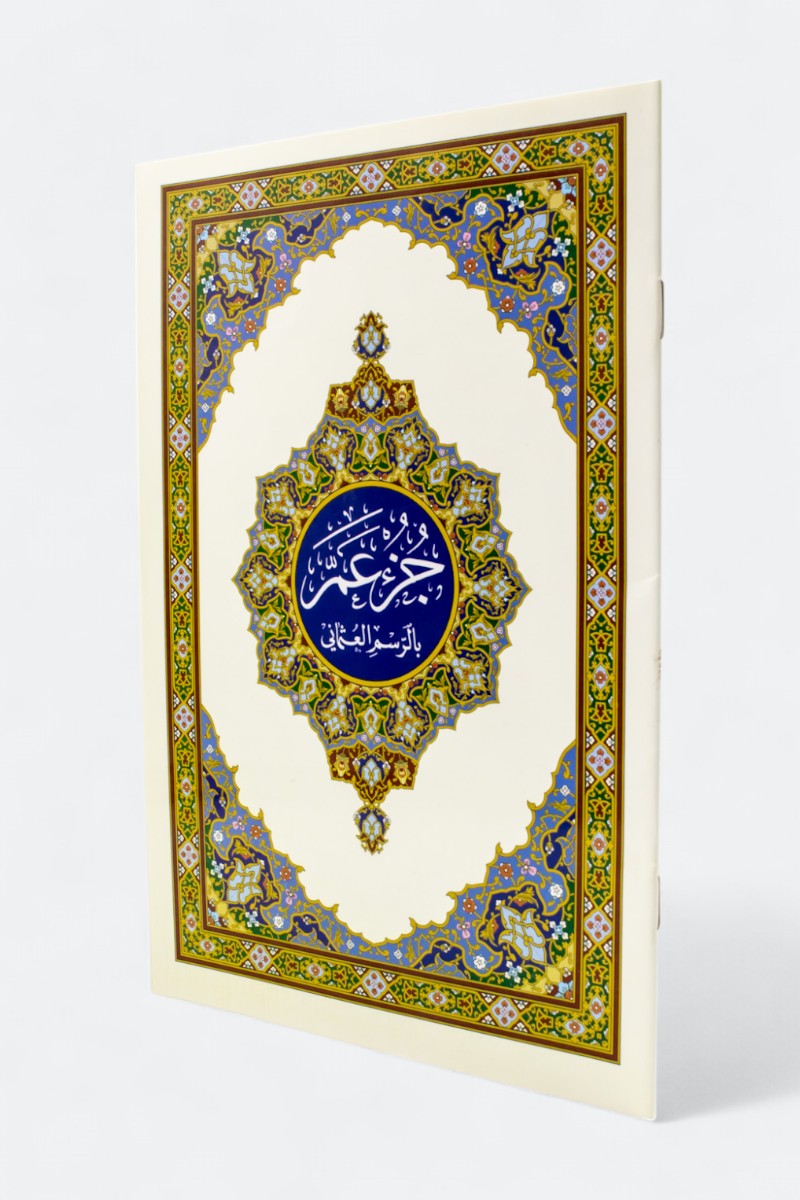 جُزْءُ عَمَّ
بالرَّسمِ العُثمَاني